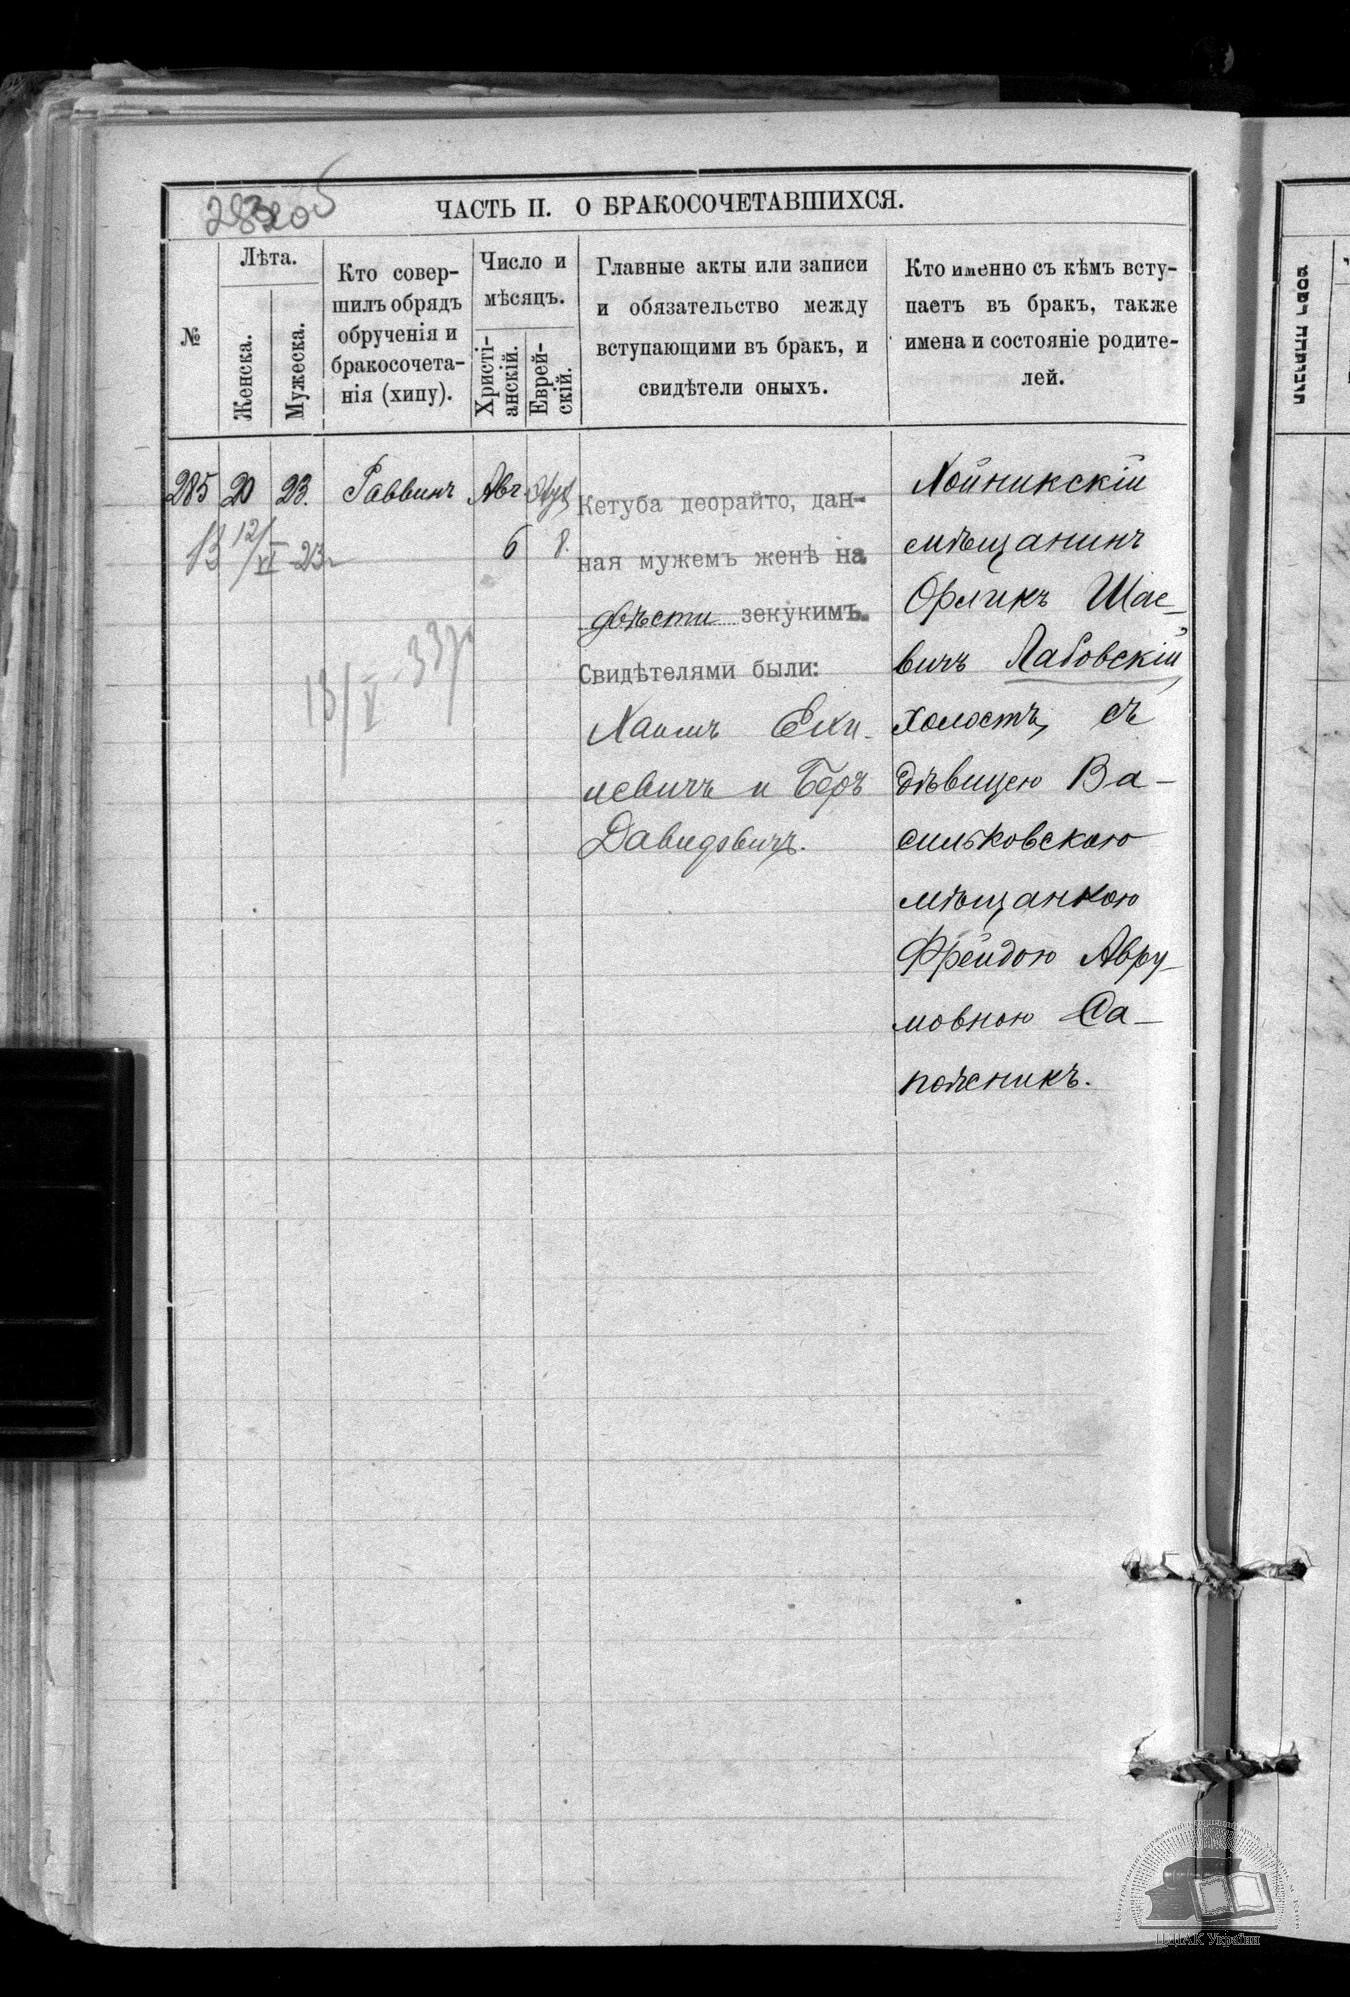 ЧАСТЬ II. О БРАКОСОЧЕТАВШИХСЯ.
№
Лѣта.
Женска.
Мужеска.
Кто совер-
шилъ обрядъ
обрученія и
бракосочета-
нія (хипу).
Число и
мѣсяцъ.
Христі-
анскій.
Еврей-
скій.
Главные акты или записи
и обязательство между
вступающими въ бракъ, и
свидѣтели оныхъ.
Кто именно съ кѣмъ всту-
паетъ въ бракъ, также
имена и состояніе родите-
лей.
285 20 23. Раввинъ Авг.
6 8.
В 12/VI 23г
13/V 37г
Кетуба деорайто, дан-
ная мужемъ женѣ на
двѣсти зекукимъ.
Свидѣтелями были:
Хаимъ
и Беръ
Давидовичъ.
Хойникскій
мѣщанинъ
Орликъ Шае-
вичъ Лабовскій,
холостъ, съ
дѣвицею Ва-
сильковскою
мѣщанкою
Фрейдою Авру-
мовною Са-
пожникъ.
ЦДІАК України